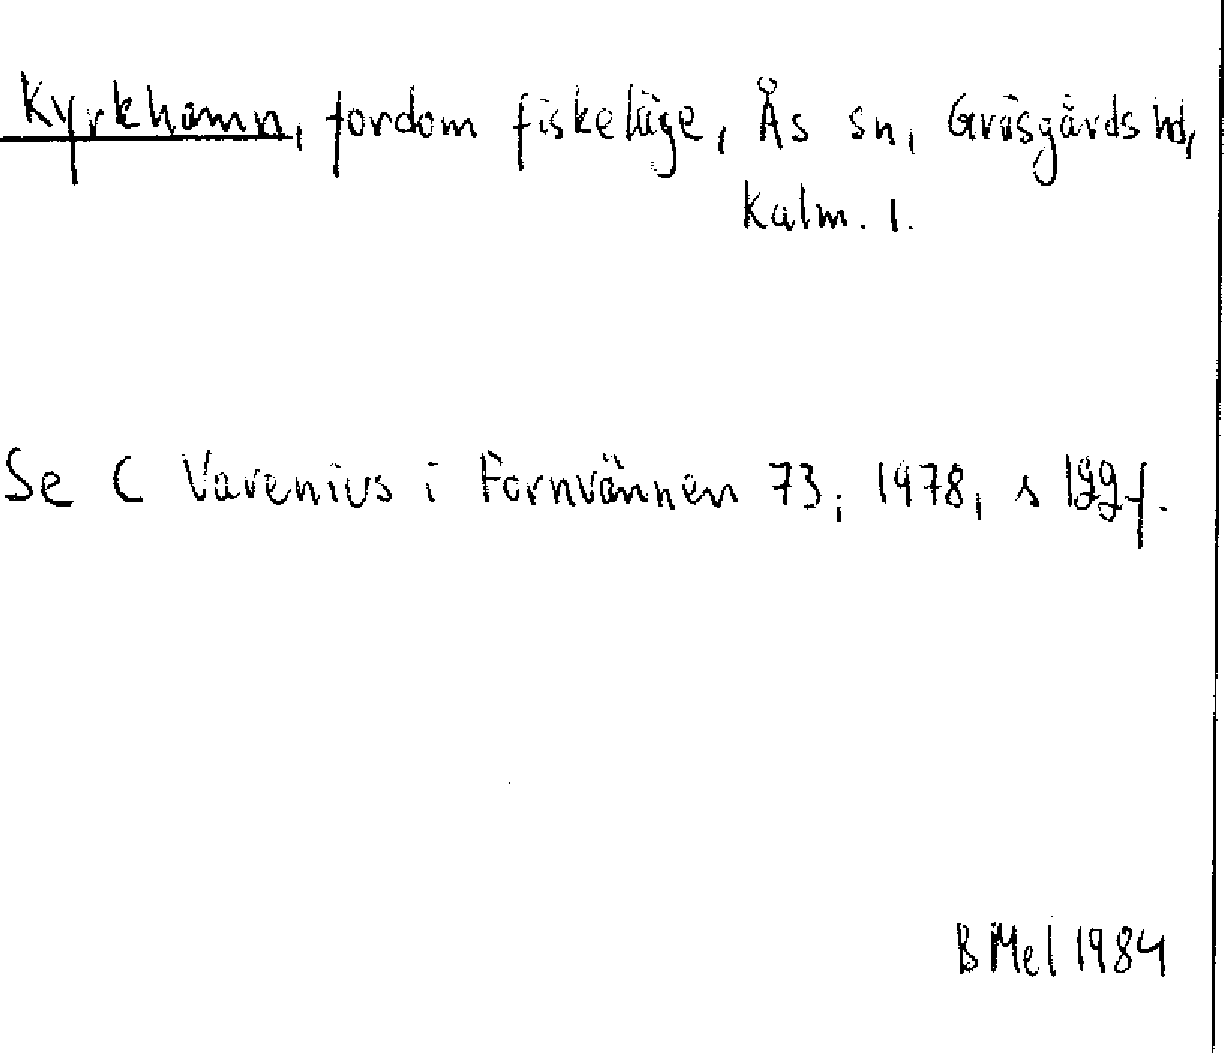 Kyrkhamn, fordom fiskeläge, Ås sn, Gräsgårds hd,
Kalm. l.
Se C Varenius i Fornvännen 73, 1978, s
B Mel 1984